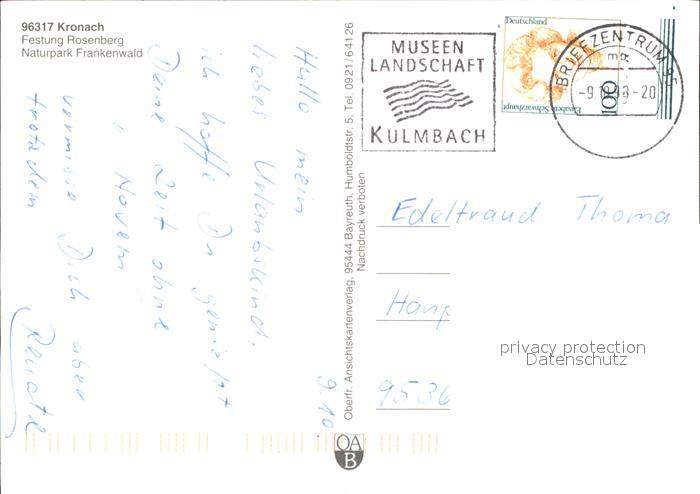 96317 Kronach
Festung Rosenberg
Naturpark Frankenwald
MUSEEN
LANDSCHAFT
KULMBACH
Deutschland
100
Elisabeth Schwarzhaupt
BRIEFZENTRUM 95
mg
-9.10.98-20
9.10
Hallo mein
liebes Urlaubskind,
ich hoffe Du genießt
Deine Zeit ohne
vermisse Dich aber
trotzdem
Renate
Oberfr. Ansichtskartenverlag, 95444 Bayreuth, Humboldtstr. 5, Tel. 0921/64126
Nachdruck verboten
Edeltraud Thoma
Haup
9536
privacy protection
Datenschutz
OA
B